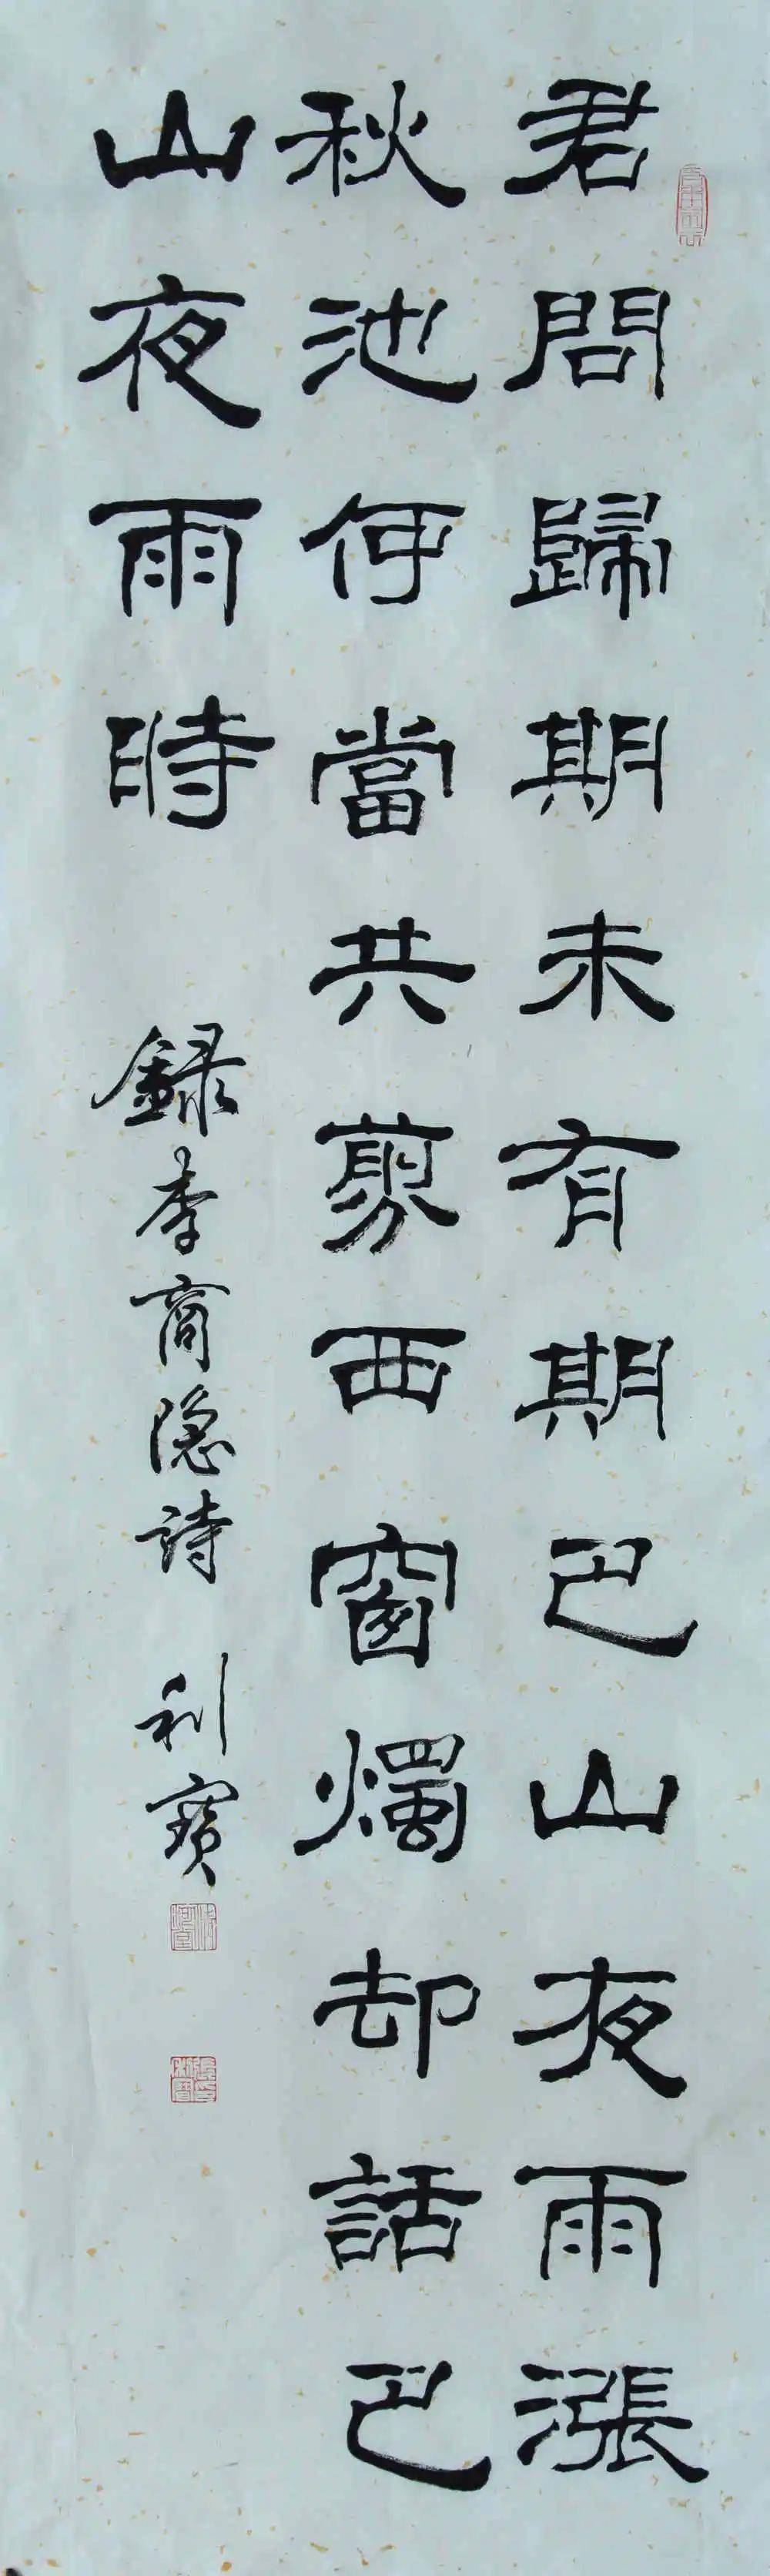 君問歸期未有期巴山夜雨漲
秋池何當共翦西窗燭却話巴
山夜雨時
録李商隐詩 利寶